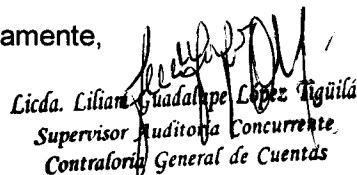 amente,
Licda. Lilian Guadalupe López Tigüilá
Supervisor Auditoria Concurrente
Contraloría General de Cuentas